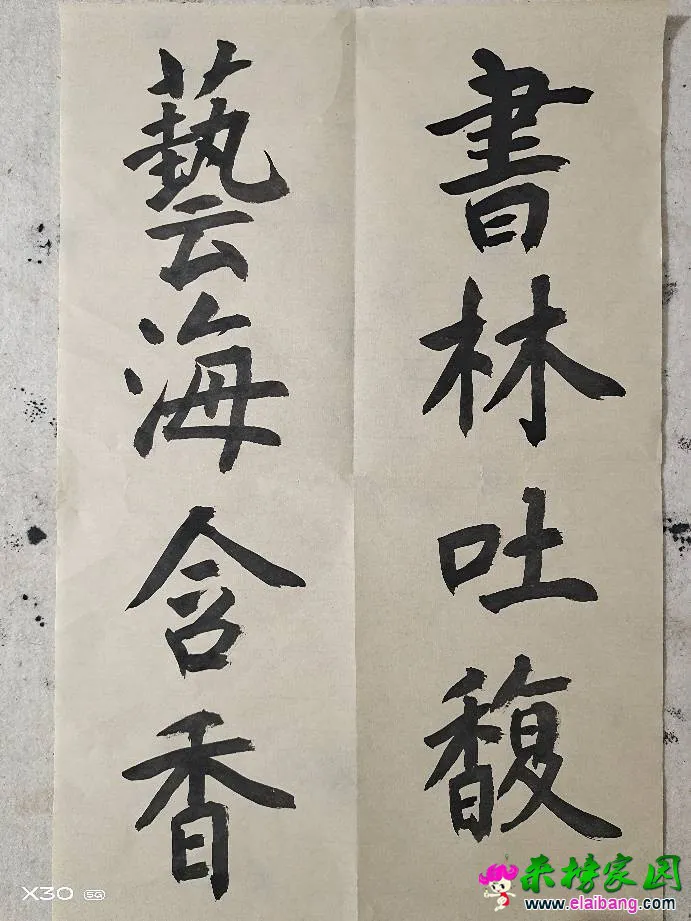 書林吐馥
藝海含香
X30 5G
来榜家园
www.elaibang.com